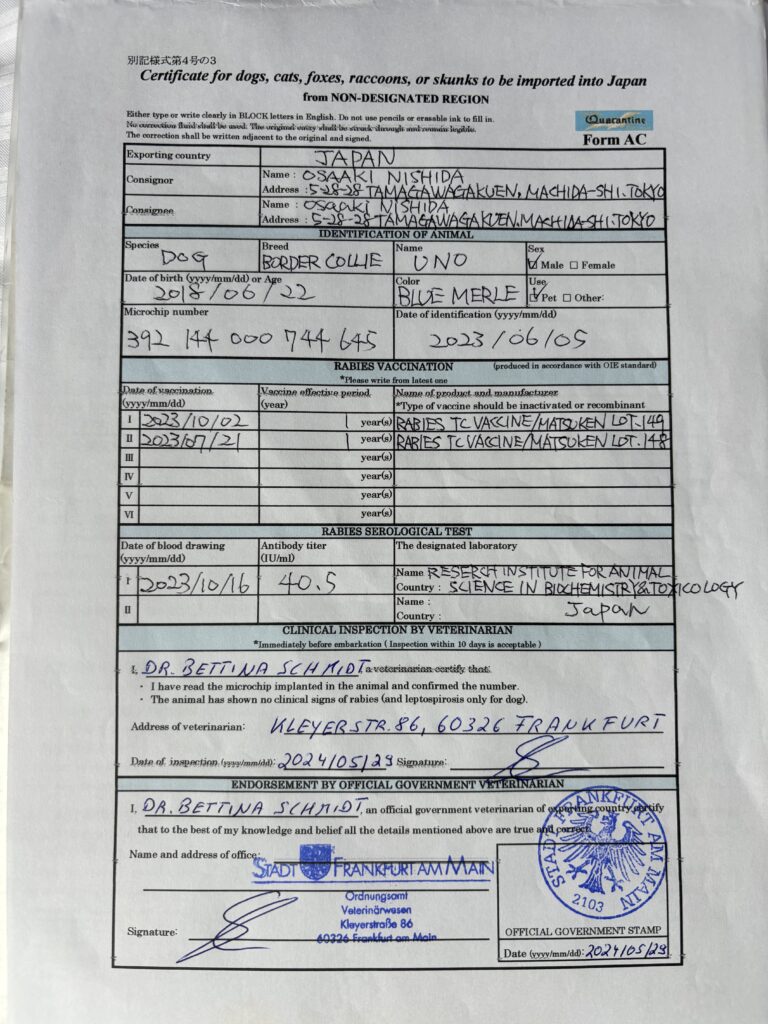 別記様式第4号の3
Certificate for dogs, cats, foxes, raccoons, or skunks to be imported into Japan
from NON-DESIGNATED REGION
Either type or write clearly in BLOCK letters in English. Do not use pencils or erasable ink to fill in.
No correction fluid shall be used. The original entry shall be struck through and remain legible.
The correction shall be written adjacent to the original and signed.
Quarantine
Form AC
Exporting country JAPAN
Consignor Name : OSAAKI NISHIDA
Address : 5-28-28 TAMAGAWAGAKUEN, MACHIDA-SHI.TOKYO
Consignee Name : OSaaki NISHIDA
Address : 5-28-28 TAMAGAWAGAKUEN.MACHIDA-SHI.TOKYO
IDENTIFICATION OF ANIMAL
Species DOG Breed BORDER COLLIE Name UNO Sex ☑ Male ☐ Female
Date of birth (yyyy/mm/dd) or Age 2018/06/22 Color BLUE MERLE Use ☑ Pet ☐ Other:
Microchip number 392 144 000 744 645 Date of identification (yyyy/mm/dd) 2023/06/05
RABIES VACCINATION (produced in accordance with OIE standard)
*Please write from latest one
Date of vaccination (yyyy/mm/dd) Vaccine effective period (year) Name of product and manufacturer
*Type of vaccine should be inactivated or recombinant
I 2023/10/02 1 year(s) RABIES TC VACCINE/MATSUKEN LOT.149
II 2023/07/21 1 year(s) RABIES TC VACCINE/MATSUKEN LOT.148
III year(s)
IV year(s)
V year(s)
VI year(s)
RABIES SEROLOGICAL TEST
Date of blood drawing (yyyy/mm/dd) Antibody titer (IU/ml) The designated laboratory
I 2023/10/16 40.5 Name RESERCH INSTITUTE FOR ANIMAL
Country : SCIENCE IN BIOCHEMISTRY & TOXICOLOGY
II Name :
Country : Japan
CLINICAL INSPECTION BY VETERINARIAN
*Immediately before embarkation ( Inspection within 10 days is acceptable )
I, DR. BETTINA SCHMIDT a veterinarian certify that:
・ I have read the microchip implanted in the animal and confirmed the number.
・ The animal has shown no clinical signs of rabies (and leptospirosis only for dog).
Address of veterinarian: KLEYERSTR. 86, 60326 FRANKFURT
Date of inspection (yyyy/mm/dd): 2024/05/29 Signature:
ENDORSEMENT BY OFFICIAL GOVERNMENT VETERINARIAN
I, DR. BETTINA SCHMIDT, an official government veterinarian of exporting country certify
that to the best of my knowledge and belief all the details mentioned above are true and correct.
Name and address of office:
STADT FRANKFURT AM MAIN
Ordnungsamt
Veterinärwesen
Kleyerstraße 86
60326 Frankfurt am Main
Signature:
STADT FRANKFURT AM MAIN
2103
OFFICIAL GOVERNMENT STAMP
Date (yyyy/mm/dd): 2024/05/29